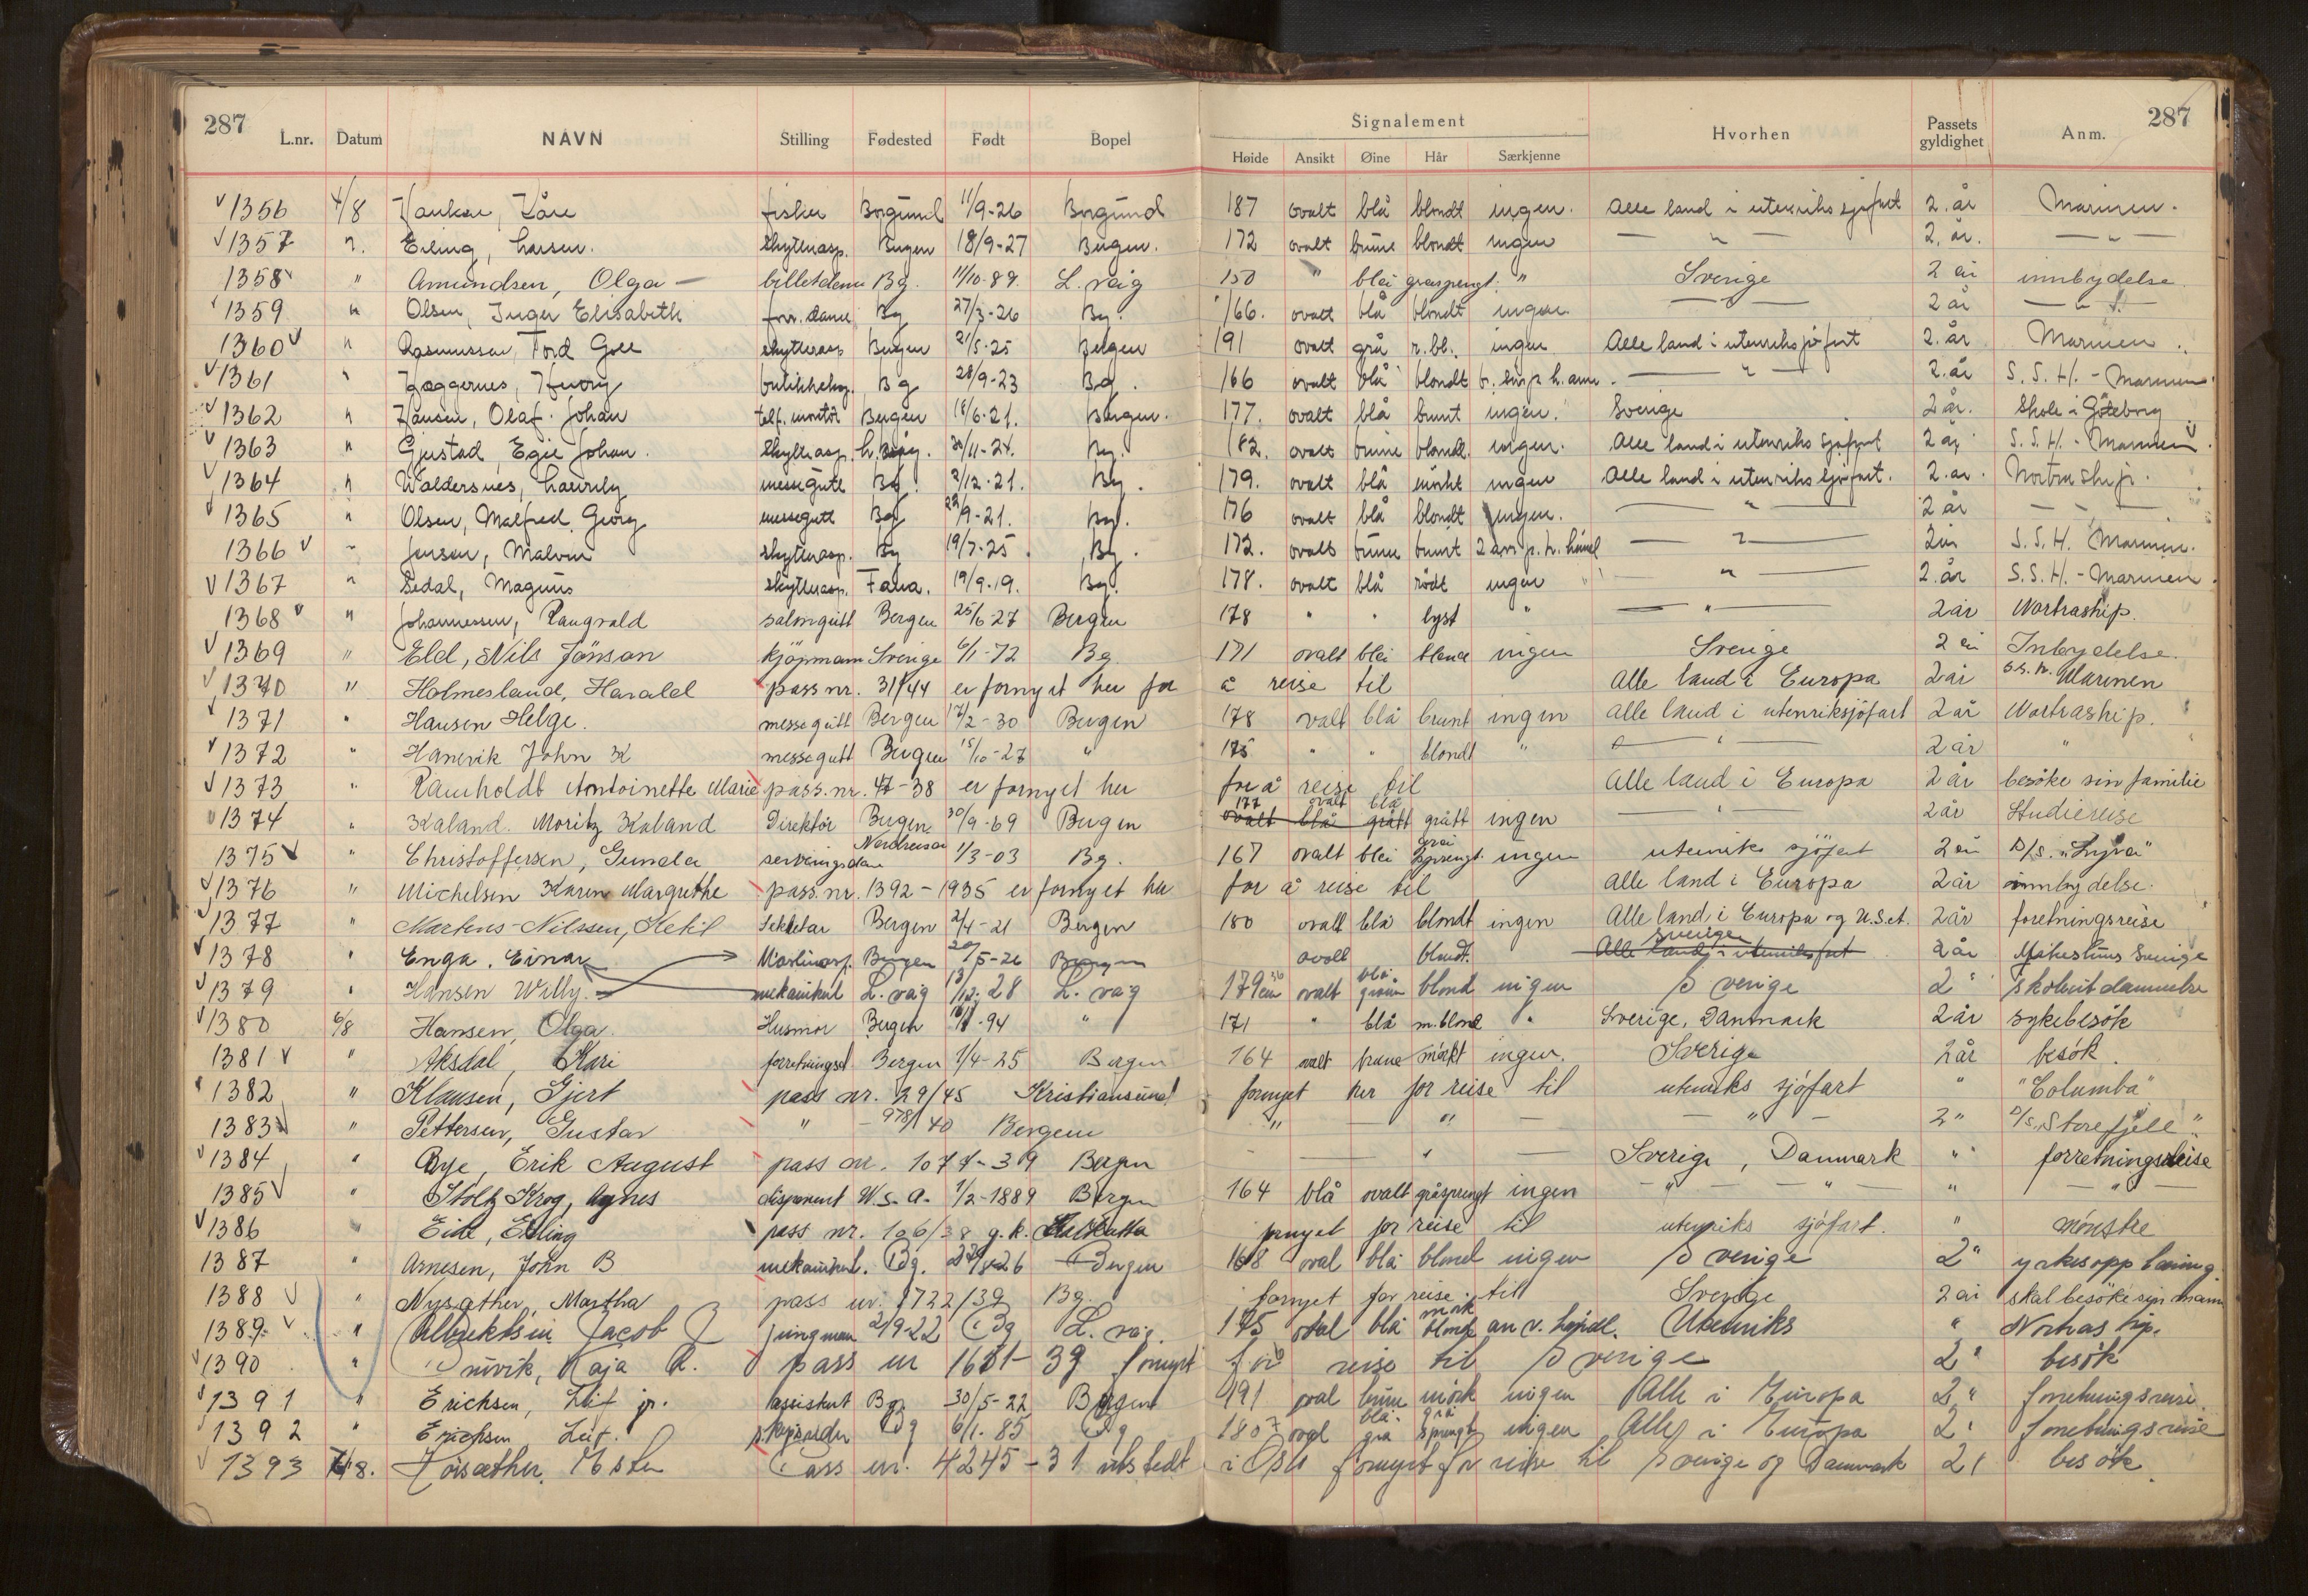 287 287
Signalement
L.nr. Datum NAVN Stilling Fødested Født Bopel Høide Ansikt Øine Hår Særkjenne Hvorhen Passets gyldighet Anm.
1356 4/8 Kåre fisker Borgund 11/9-26 Borgund 187 ovalt blå blondt ingen. Alle land i utenriks sjøfart 2. år Marinen.
1357 ". Erling, Larsen. skytterasp. Bergen 18/9-27 Bergen. 172 ovalt brune blondt ingen — " — 2. år. — " —
1358 " Amundsen, Olga — billetdame Bg. 11/10-89. L. våg 150 " blå gråsprengt. " Sverige 2 år innbydelse.
1359 " Olsen, Inger Elisabeth forr. dame Bg 27/3-26 Bg. 166. ovalt blå blondt ingen. — " — 2 år — " —
1360 " Rasmussen, Tord Goll skytterasp Bergen 21/5-25 Bergen 191 ovalt grå r.bl. ingen Alle land i utenriksjøfart 2. år Marinen.
1361 " Bg 28/9-23 Bg. 166 ovalt blå blondt — " — 2. år S.S.H. - Marinen.
1362 " Hansen, Olaf. Johan telf. montør Bergen 18/6-21. Bergen. 177. ovalt blå brunt ingen. Sverige 2 år. Skole i Göteborg
1363 " Gjerstad, Egil Johan. skytterasp. L. våg. 30/11-24. Bg. 182. ovalt brune blondt. ingen. Alle land i utenriks sjøfart 2 år S.S.H. - Marinen.
1364 " Waldersnes, Lauritz messegutt Bg. 3/12-21. Bg. 179. ovalt blå mørkt ingen Alle land i utenriks sjøfart. 2. år. Nortraship.
1365 " Olsen, Malfred, Georg messegutt Bg 22/9-21. Bg. 176 ovalt blå blondt ingen. — " — 2 år — " —
1366 " Jensen, Malvin skytterasp. Bg 19/7-25. Bg. 172. ovalt brune brunt 2 arr p. h. hånd — " — 2 år S.S.H. Marinen.
1367 " Sedal, Magnus skytterasp. Fana. 19/9-19. Bg. 178. ovalt blå rødt ingen — " — 2. år S.S.H. - Marinen.
1368 " Johannessen, Raugnald salongutt Bergen 25/6-27 Bergen 178 " " lyst " — " — 2 år Nortraship.
1369 " Eld, Nils Jönson kjøpmann Sverige 6/1-72 Bg. 171 ovalt blå blond ingen Sverige 2 år Inbydelse.
1370 " Holmesland, Harald pass nr. 31/44 er fornyet her for å reise til Alle land i Europa 2 år S.S.H. Marinen
1371 " Hansen Helge. messegutt Bergen 17/2-30 Bergen 178 ovalt blå brunt ingen Alle land i utenriksjøfart 2 år Nortraship.
1372 " Hanevik John K messegutt Bergen 15/10-27 " 175 " " blondt " — " — 2 år "
1373 " Ramholdt Antoinette Marie pass. nr. 47-38 er fornyet her for å reise til Alle land i Europa 2 år besøke sin familie
1374 " Kaland. Moritz Kaland Direktør Bergen 30/9-69 Bergen 177 ovalt blå grått ingen — " — 2 år Studiereise
1375 " Christoffersen, Gunda serveringsdame Nordreisa 1/3-03 Bg. 167 ovalt blå grå sprengt. ingen utenriks sjøfart 2 år D/S. "Lyra"
1376 " Michelsen Karen Margrethe pass. nr. 1392-1935 er fornyet her for å reise til Alle land i Europa 2 år innbydelse.
1377 " Martens-Nilssen, Ketil Sekretær Bergen 2/4-21 Bergen 180 ovalt blå blondt ingen Alle land i Europa og U.S.A. 2 år foretningsreise
1378 " Enga. Einar Bergen 20/5-26 Bergen ovalt blondt. Sverige Alle land i utenriksfart 2 år Sverige
1379 " Hansen Willy. mekaniker L. våg 13/12-28 L. våg 179 cm ovalt blå blond ingen Sverige 2 " skoleutdannelse
1380 6/8 Hansen, Olga. Husmor Bergen -94 " 171 " blå m.blond " Sverige, Danmark 2 år sykebesøk
1381 " Aksdal, Kari forretningsd Bergen 1/4-25 Bergen 164 ovalt brune mørkt ingen. Sverige 2 år besøk.
1382 " Klausen, Gjert pass nr. 29/45 Kristiansund fornyet her for reise til utenriks sjøfart " "Columba"
1383 " Pettersen, Gustav " — 978/40 Bergen " — " — — " — 2 " D/S "Storefjell"
1384 " Bye, Erik August pass nr. 1074-39 Bergen — " — Sverige, Danmark " " forretningsreise
1385 " Stoltz Krog, Agnes disponent U.S.A. 1/2-1889 Bergen 164 blå ovalt gråsprengt ingen — " — " — " — " —
1386 " Eide, Erling pass nr. 106/38 g.k. Kalkutta fornyet for reise til utenriks sjøfart. " mønstre
1387 " Arnesen, John B mekaniker. Bg. 26 Bergen 168 oval blå blond ingen Sverige 2 " yrkesopplæring.
1388 " Nysæther, Martha pass nr. 1722/39 Bg. fornyet for reise til Sverige 2 år skal besøke sin mann
1389 " Albriktsen Jacob J jungmann 2/9-22 Bg L. våg. 175 oval blå mørk blond arr v. håndl. Utenriks " Nortraship.
1390 " Raja R. pass nr 1651-39 fornyet for reise til Sverige 2 " besøk
1391 " Erichsen, Leif jr. assistent Bg. 30/5-22 Bergen 191 oval brune mørk ingen Alle i Europa 2 " forretningsreise.
1392 " Erichsen Leif. skipsreder Bg 6/1-85 Bg 180 oval blå grå grå sprengt ingen Alle i Europa 2 " forretningsreise
1393 7/8. Høisæther, Ester Pass nr. 4245-31 utstedt i Oslo fornyet for reise til Sverige og Danmark 2 " besøk.